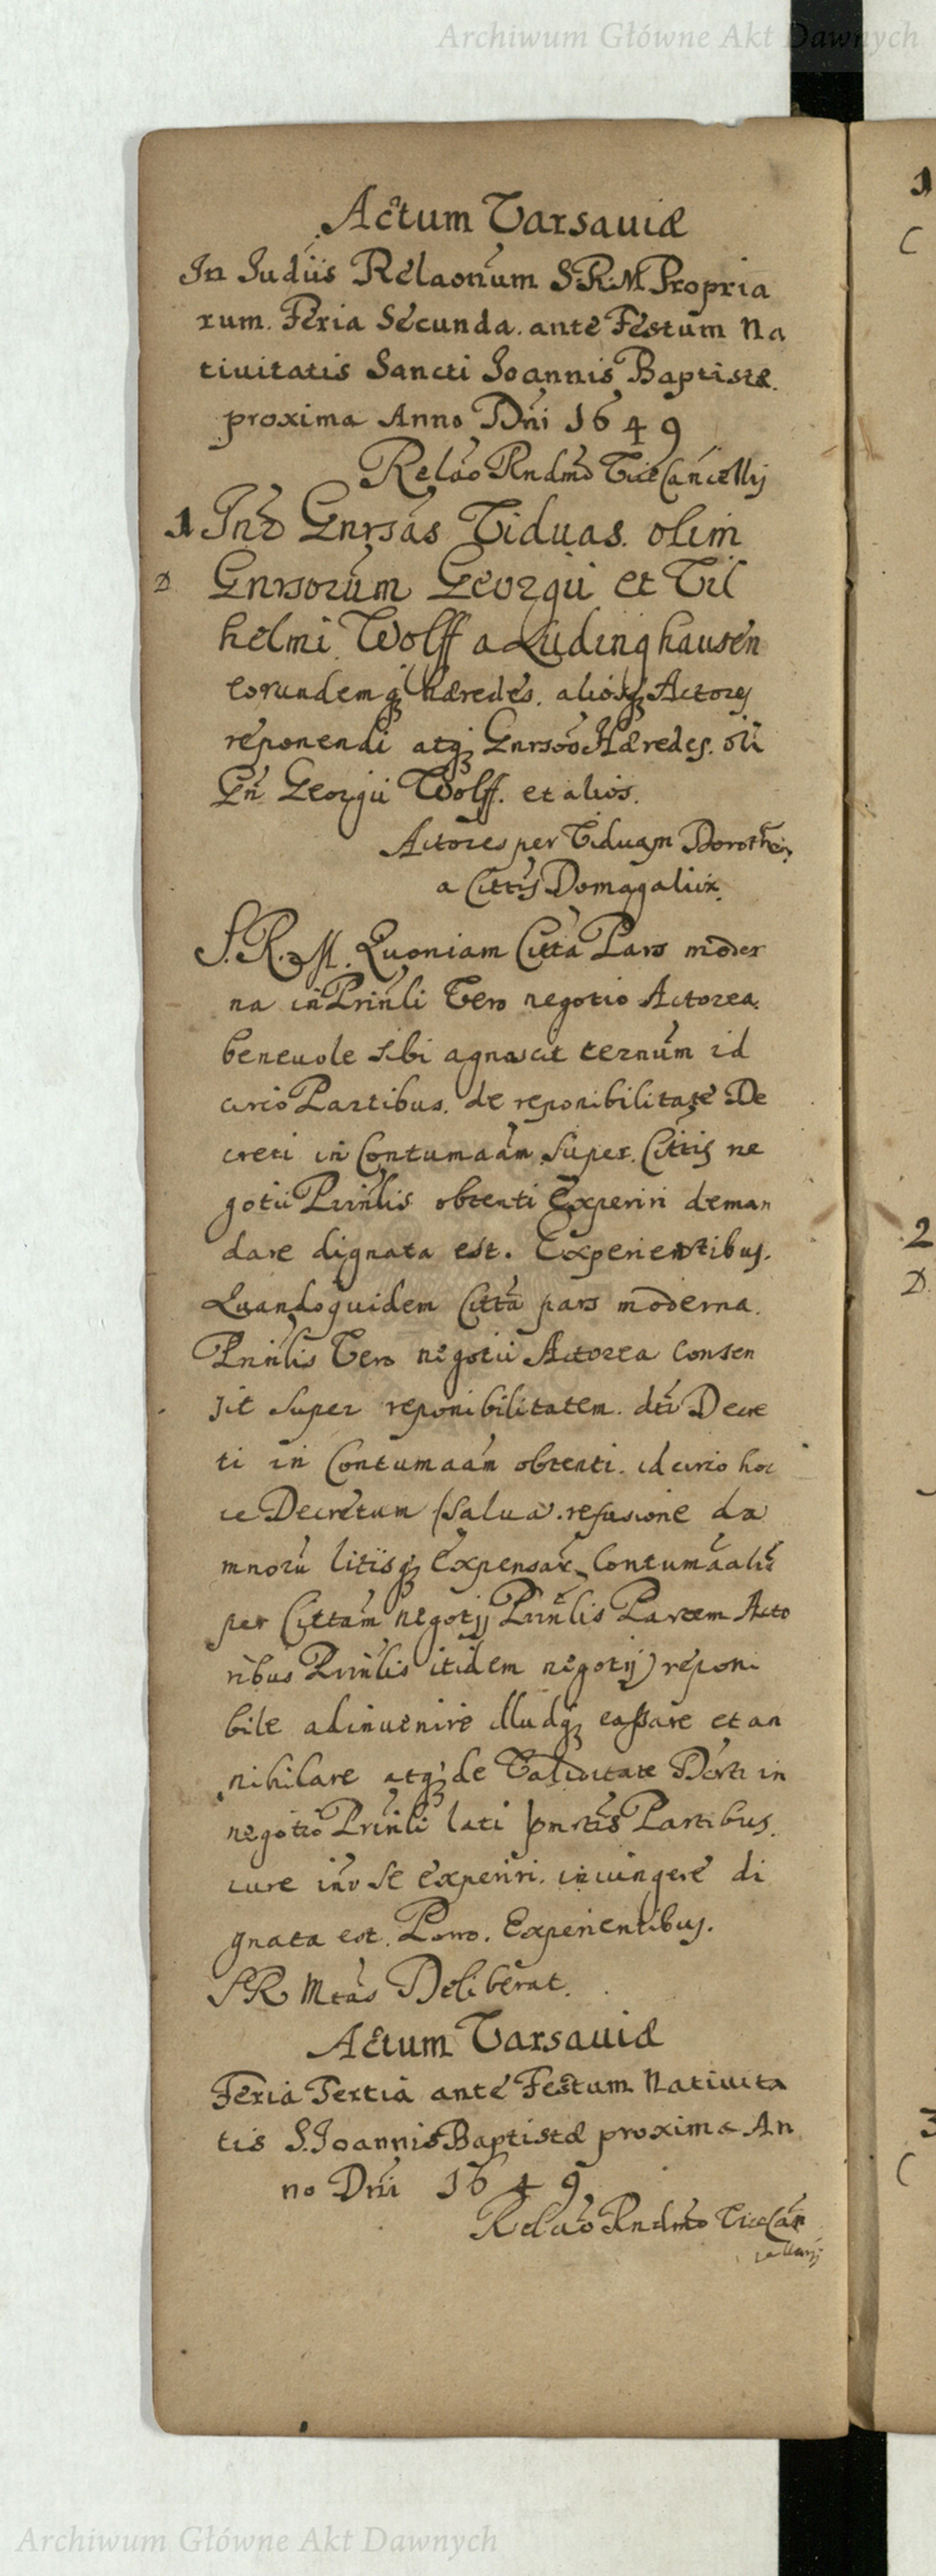 Archiwum Główne Akt Dawnych
Actum Varsaviæ
In Judiis Relaonum S.R.M. Propria
rum. Feria Secunda. ante Festum Na
tiuitatis Sancti Joannis Baptistæ.
proxima Anno Dni 1649
Relao Rndmo ViceCancellij
1 Int Gnrsas Viduas. olim
D Gnrsorum Georgii et Vil
helmi Wolff a Ludinghausen
eorundemq hæredes. aliosq Actores
reponendi atq Gnrsoo Hæredes. oli
Gn Georgii Wolff. et alios.
Actores per Viduam Dorothei
a Cittis Domagalicz.
S.R.M. Quoniam Citta Pars moder
na in Prinli Vero negotio Actorea.
beneuole sibi agnascit ternum id
circo Partibus. de reponibilitate De
creti in Contumaam super. Cittis ne
gotii Prinlis obtenti Experiri deman
dare dignata est. Experientibus.
Quandoquidem Citta pars moderna.
Prinlis Vero negotii Actorea Consen
sit super reponibilitatem. dti Decre
ti in Contumaam obtenti. idcirco hoc
ce Decretum (salua. refusione da
mnoru litisq Expensar Contumaalis
per Cittam negotij Prinlis Partem Acto
ribus Prinlis itidem negotij) reponi
bile adinuenire illudq cassare et an
nihilare atq de Validitate Dcrti in
negotio Prinli lati pnrtis Partibus.
iure int se experiri. iniungere di
gnata est. Porro. Experientibus.
SR Mtas Deliberat.
Actum Varsaviæ
Feria Tertia ante Festum Natiuita
tis S. Joannis Baptistæ proxima An
no Dni 1649
Relao Rndmo ViceCan
cellarij
1
C
2
D
3
C
Archiwum Główne Akt Dawnych